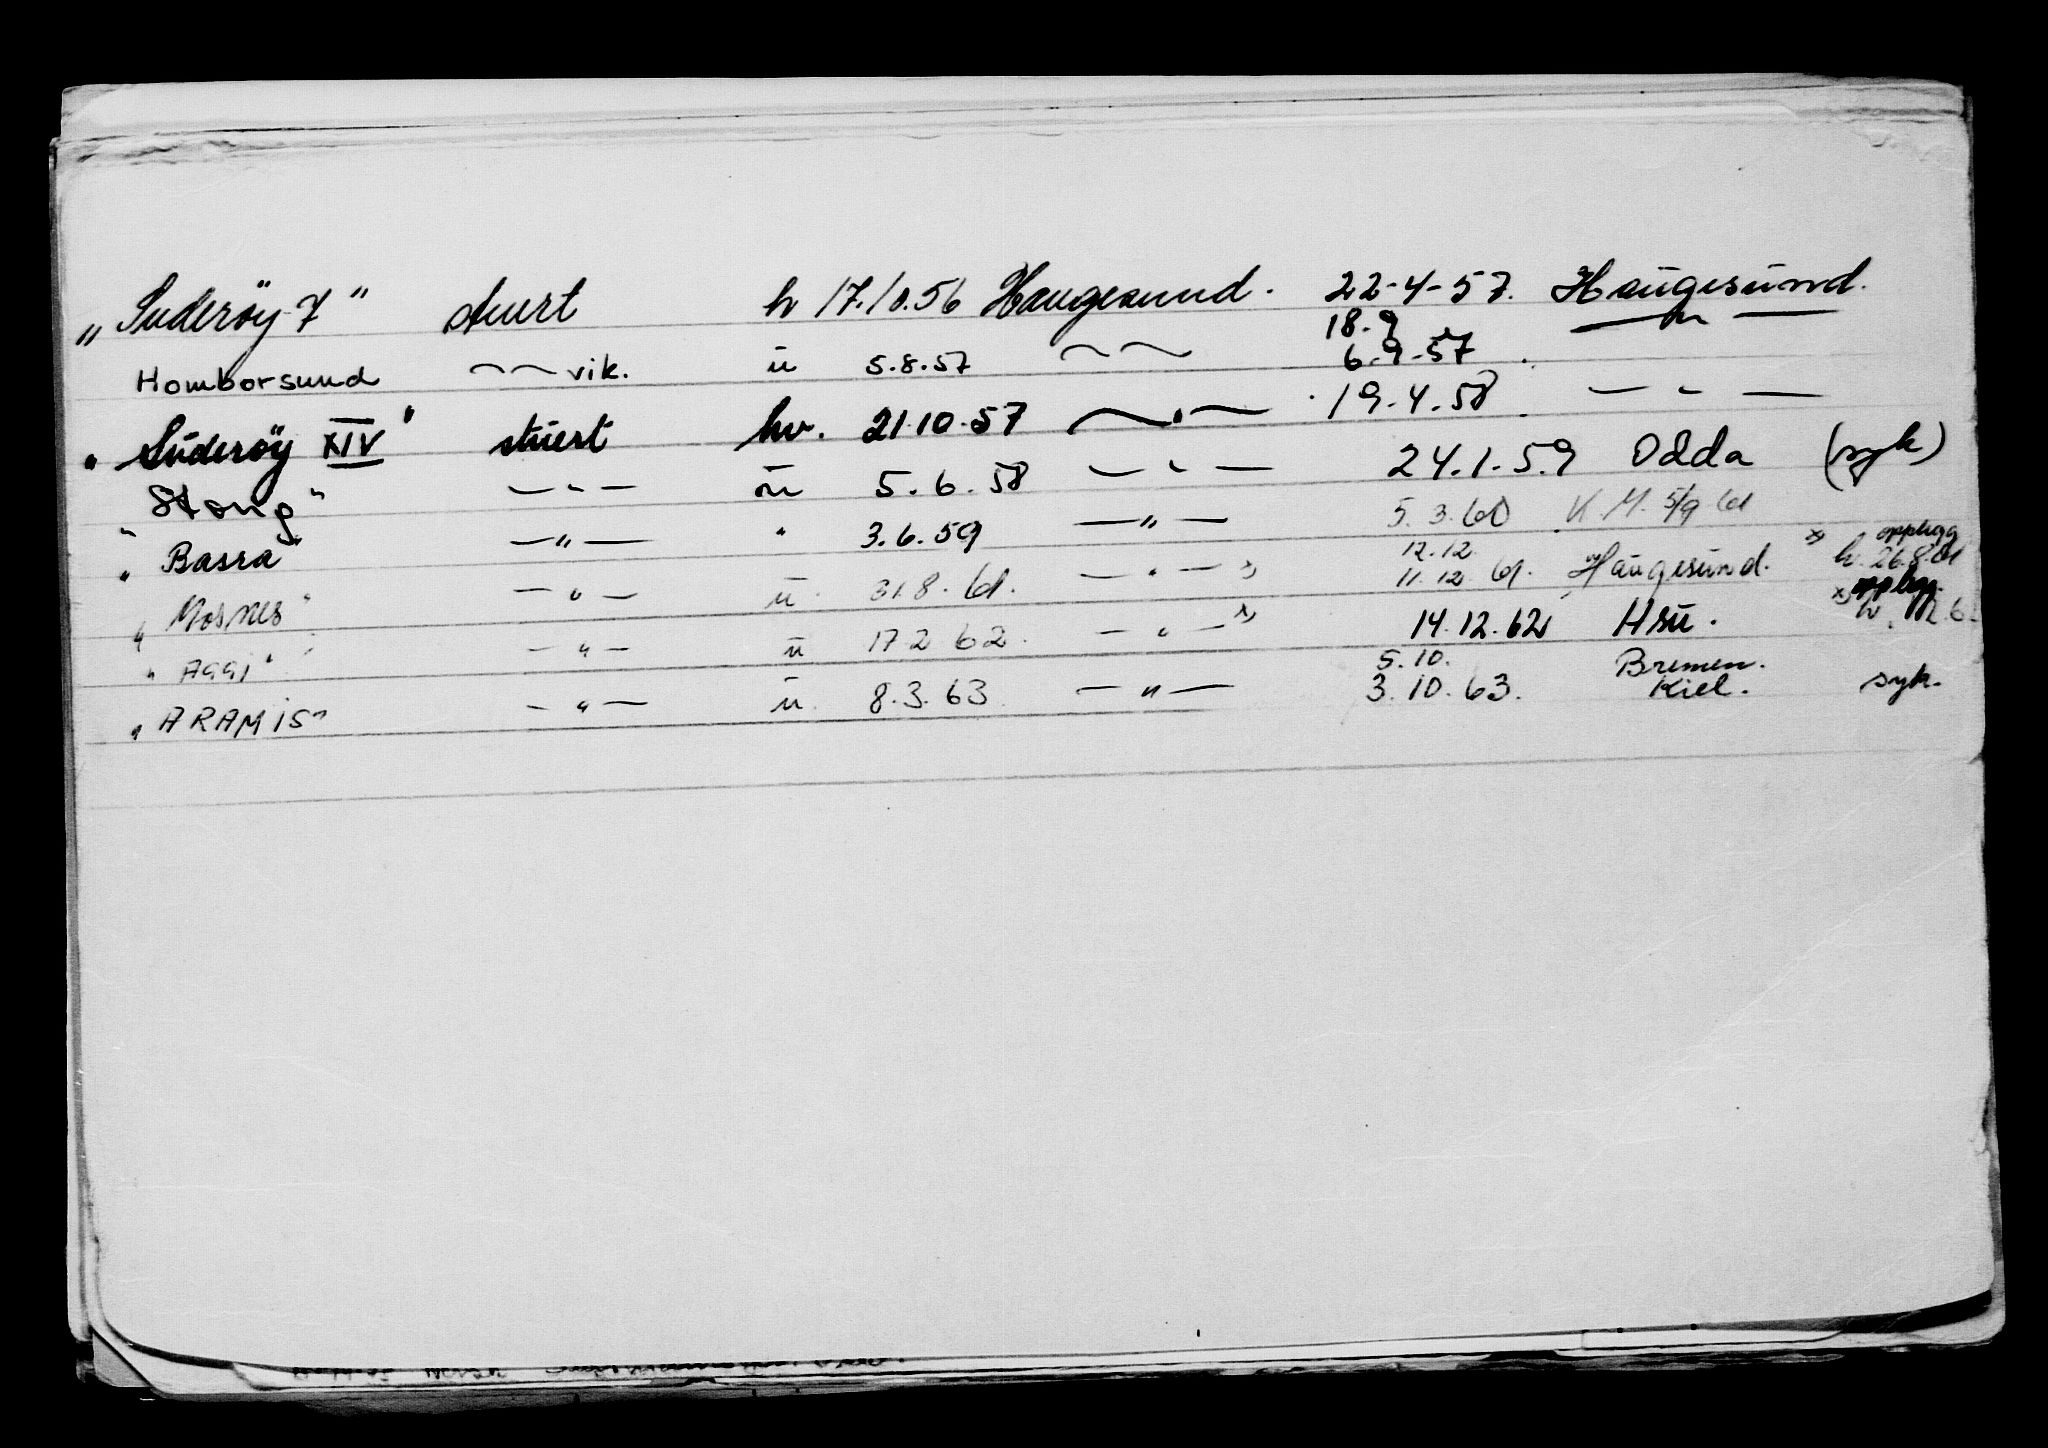 „Suderøy 7" stuert h 17.10.56 Haugesund. 22-4-57. Haugesund.
Homborsund —〃— vik. u 5.8.57 —〃— 18.9 6.9.57 —〃—
„Suderøy XIV" stuert hv. 21.10.57 —〃— 19.4.58 —〃—
„Stong" —〃— u 5.6.58 —〃— 24.1.59 Odda (syk)
„Basra" —〃— " 3.6.59 —〃— 5.3.60 K.M. 5/9 61
„Mosnes" —〃— u 31.8.61. —〃— x) 12.12 11.12.61. Haugesund. x) opplegg h. 26.8.61
„Aggi" —〃— u 17.2.62. —〃— x) 14.12.62 Hsu. x) opplegg.
„ARAMIS" —〃— u. 8.3.63 —〃— 5.10. 3.10.63. Bremen. Kiel. syk.